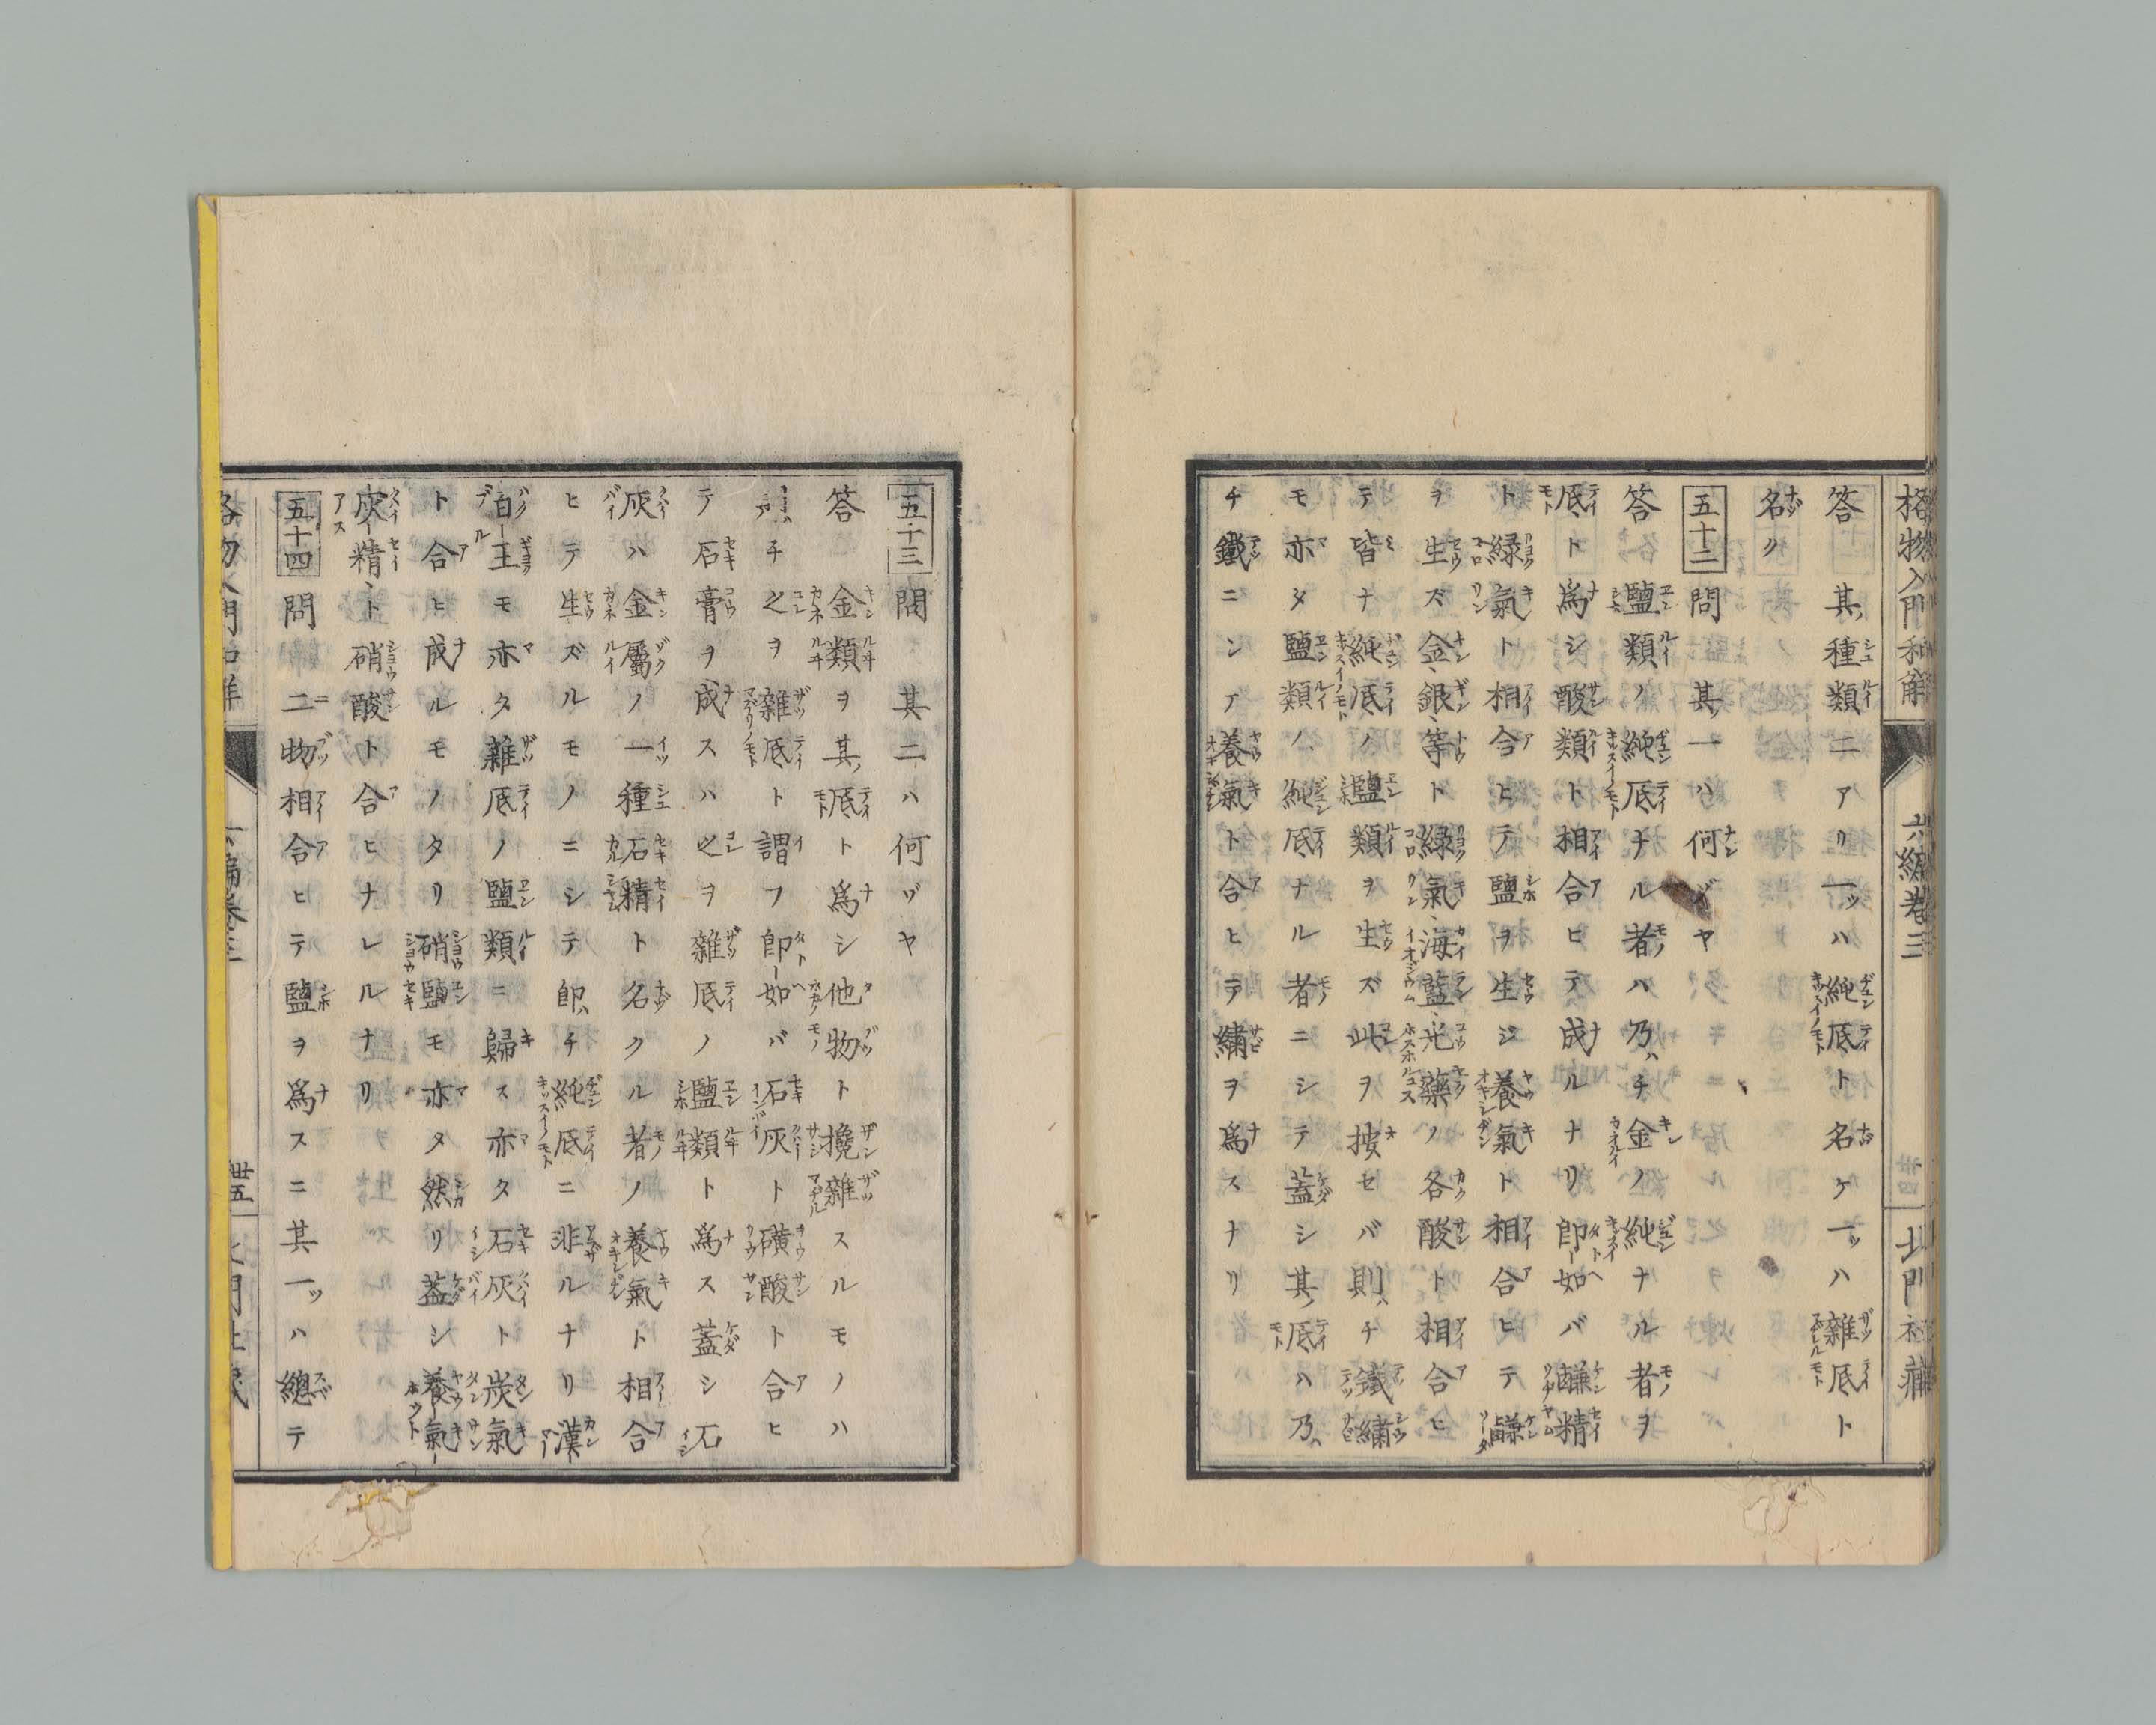 格物入門和解 六編卷三 北門社藏
答 其種類二アリ一ツハ純底ト名ケ一ツハ雜底ト
名ク
五十二 問 其一ハ何ヅヤ
答 鹽類ノ純底ナル者ハ乃チ金ノ純ナル者ヲ
底ト爲シ酸類ト相合ヒテ成ルナリ卽如バ𥂁精
ト綠氣ト相合ヒテ鹽ヲ生ジ養氣ト相合ヒテ鹻
ヲ生ズ金銀等ト綠氣海藍光藥ノ各酸ト相合ヒ
テ皆ナ純底ノ鹽類ヲ生ズ此ヲ按セバ則チ鐵繡
モ亦タ鹽類ノ純底ナル者ニシテ蓋シ其底ハ乃
チ鐵ニシテ養氣ト合ヒテ繡ヲ爲スナリ
五十三 問 其二ハ何ヅヤ
答 金類ヲ其底ト爲シ他物ト攙雜スルモノハ
チ之ヲ雜底ト謂フ卽如バ石灰ト磺酸ト合ヒ
テ石膏ヲ成スハ之ヲ雜底ノ鹽類ト爲ス蓋シ石
灰ハ金屬ノ一種石精ト名クル者ノ養氣ト相合
ヒテ生ズルモノニシテ卽チ純底ニ非ルナリ漢
白玉モ亦タ雜底ノ鹽類ニ歸ス亦タ石灰ト炭氣
ト合ヒ成ルモノタリ硝鹽モ亦タ然リ蓋シ養氣
灰精ト硝酸ト合ヒナレルナリ
五十四 問 二物相合ヒテ鹽ヲ爲スニ其一ツハ總テ
格物入門和解 六編卷三 卅五 北門社藏